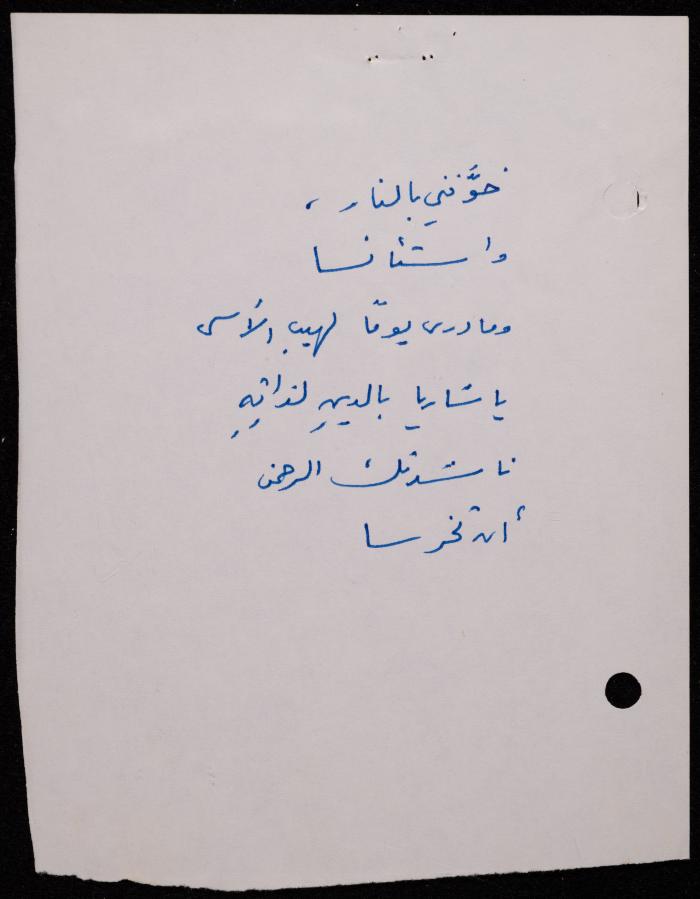 خوَّفني بالنار ،
واستأنسا
وما درى يومًا لهيب الأسى
يا شاريا بالدينِ لذاتِهِ
ناشدتك الرحمن
أن تخرسا